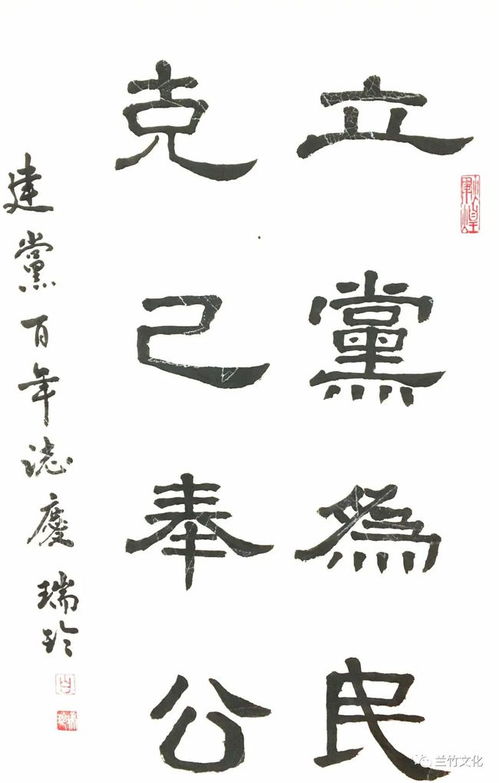 立黨為民
克己奉公
建黨百年誌慶 瑞玲
兰竹文化